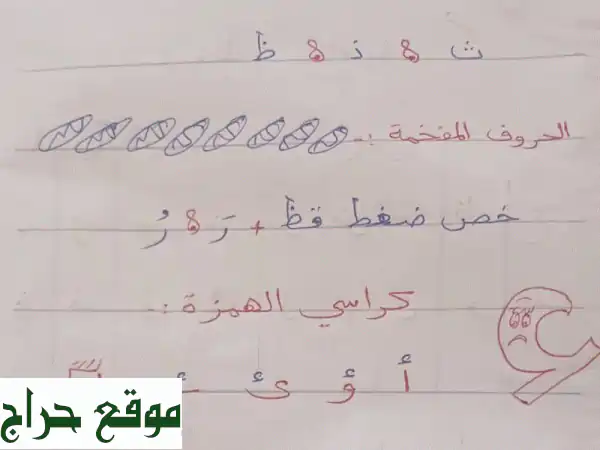 ث ؛ ذ ؛ ظ
الحروف المفخمة :-
خص ضغط قظ + رَ ؛ رُ
كراسي الهمزة :-
أ ؤ ئ ء
موقع حراج